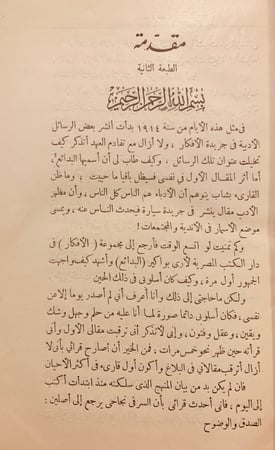 مقدّمة
الطبعة الثانية
بسم الله الرحمن الرحيم
فى مثل هذه الأيام من سنة ١٩١٤ بدأت أنشر بعض الرسائل
الأدبية فى جريدة الأفكار، ولا أزال مع تقادم العهد أتذكر كيف
تخيلت عنوان تلك الرسائل، وكيف طاب لى أن أسميها البدائع،
أما أثر المقال الأول فى نفسى فسيظل باقياً ما حييت، وما ظن
القارىء بشاب يتوهم أن الأدباء هم الناس كل الناس، وأن مظهر
الأدب مقال ينشر فى جريدة سيارة فيحدث الناس عنه، ويمسى
موضع الأسمار فى الأندية والمجتمعات!
وكم تمنيت لو اتسع الوقت فأرجع إلى مجموعة (الأفكار) فى
دار الكتب المصرية لأرى بواكير (البدائع) وأشهد كيف واجهت
الجمهور أول مرة، وكيف كان أسلوبى فى ذلك الحين
ولكن ما حاجتى إلى ذلك وأنا أعرف أنى لم أصدر يوما إلا عن
نفسى، فكان أسلوبى دائما صورة لما أنا عليه من حلم وجهل وشك
ويقين، وعقل وفتون، وإنى لأتذكر أنى ترقبت مقالى الأول وأنى
قرأته حين ظهر نحو خمس مرات، فمن الخير أن أصارح قرائى بأنى لا
أزال أترقب مقالاتى فى البلاغ وأكون أول قارىء فى أكثر الأحيان
فان لم يكن بد من بيان المنهج الذى سلكته منذ ابتدأت أكتب
إلى اليوم، فانى أحدث قرائى بأن السر فى نجاحى يرجع إلى أصلين:
الصدق والوضوح